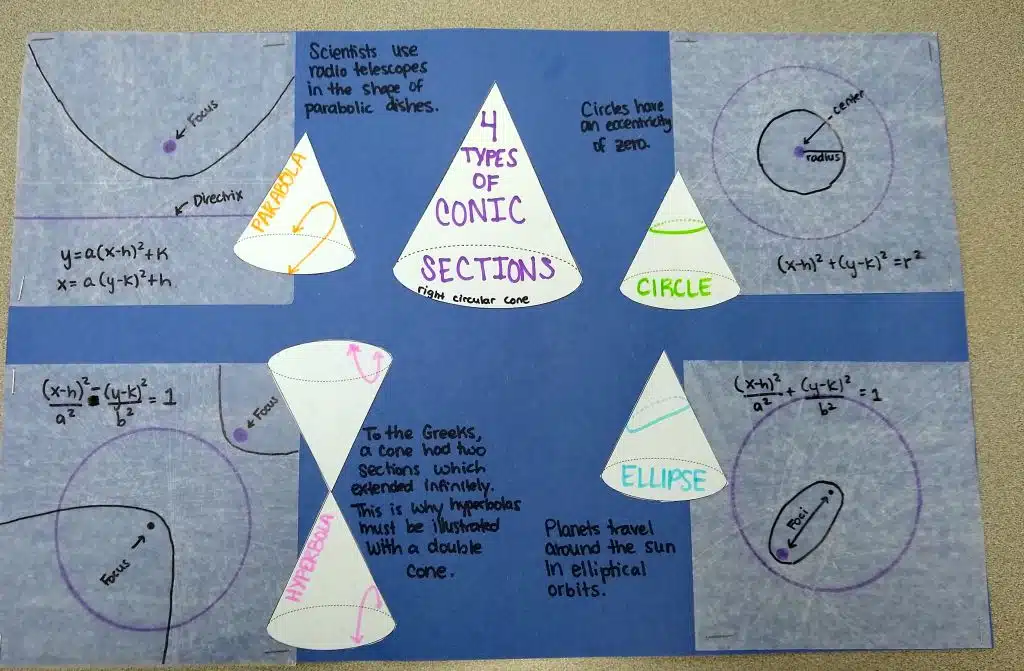 Scientists use
radio telescopes
in the shape of
parabolic dishes.
Focus
Directrix
y=a(x-h)²+k
x=a(y-k)²+h
PARABOLA
4
TYPES
OF
CONIC
SECTIONS
right circular cone
Circles have
an eccentricity
of zero.
center
radius
(x-h)²+(y-k)²=r²
CIRCLE
(x-h)²/a² - (y-k)²/b² = 1
Focus
Focus
HYPERBOLA
To the Greeks,
a cone had two
sections which
extended infinitely.
This is why hyperbolas
must be illustrated
with a double
cone.
ELLIPSE
(x-h)²/a² + (y-k)²/b² = 1
Foci
Planets travel
around the sun
in elliptical
orbits.